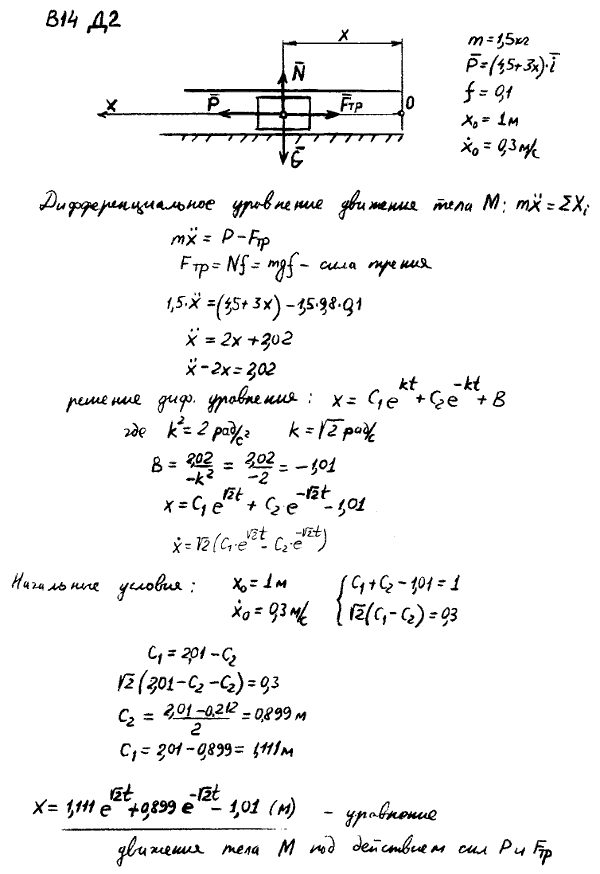 В14 Д2
x
N̄
P̄
F̄тр
x
O
Ḡ
m = 1,5 кг
P̄ = (4,5+3x)·ī
f = 0,1
x₀ = 1 м
ẋ₀ = 0,3 м/с
Дифференциальное уравнение движения тела М: mẍ = ΣXᵢ
mẍ = P − Fтр
Fтр = Nf = mgf – сила трения
1,5·ẍ = (4,5+3x) − 1,5·9,8·0,1
ẍ = 2x + 2,02
ẍ − 2x = 2,02
решение диф. уравнения: x = C₁e^{kt} + C₂e^{−kt} + B
где k² = 2 рад/с² k = √2 рад/с
B = 2,02/−k² = 2,02/−2 = −1,01
x = C₁e^{√2t} + C₂·e^{−√2t} − 1,01
ẋ = √2(C₁·e^{√2t} − C₂·e^{−√2t})
Начальные условия: x₀ = 1 м { C₁ + C₂ − 1,01 = 1
ẋ₀ = 0,3 м/с √2(C₁ − C₂) = 0,3
C₁ = 2,01 − C₂
√2(2,01 − C₂ − C₂) = 0,3
C₂ = (2,01 − 0,212)/2 = 0,899 м
C₁ = 2,01 − 0,899 = 1,111 м
x = 1,111 e^{√2t} + 0,899 e^{−√2t} − 1,01 (м) – уравнение
движения тела М под действием сил P и Fтр